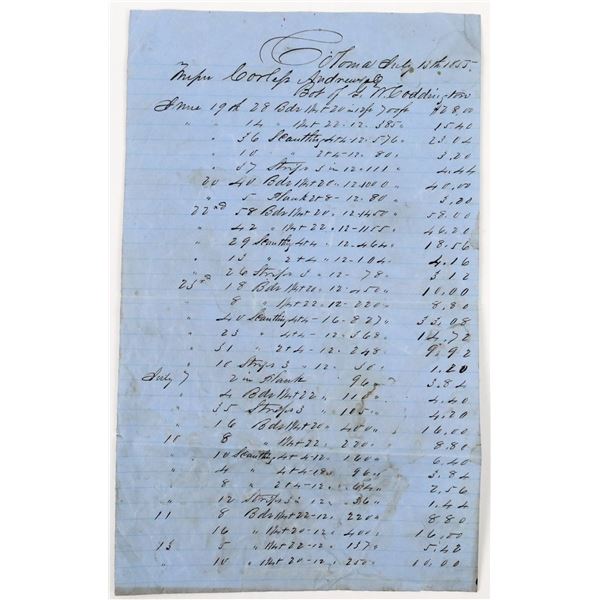 Coloma July 13th 1855.
Messrs Corless Andrews &
Bot of G. W. Coddington
June 19th 28 Bds Met 20 in 12 ft 700 ft $28,00
" 14 " Met 22-12-385 " 15.40
" 36 Scantling 4+4-12-576 " 23.04
" 10 " 2+4-12-80 " 3.20
" 37 Strips 3 in 12-111 " 4.44
20 40 Bds Met 20-12-1000 " 40.00
" 5 Plank 2+8-12-80 " 3.20
22nd 58 Bds Met 20-12-1450 " 58.00
" 42 " Met 22-12-1155 " 46.20
" 29 Scantling 4+4-12-464 " 18.56
" 13 " 2+4-12-104 4.16
" 26 Strips 3 " 12-78 " 3.12
23rd 18 Bds Met 20-12-450 " 10.00
" 8 " Met 22-12-220 " 8.80
" 40 Scantling 4+4-16-827 " 33.08
" 23 " 4+4-12-368 " 14.72
" 31 " 2+4-12-248 9.92
" 10 Strips 3 " 12-30 " 1.20
July 7 2 in Plank 96 " 3.84
" 4 Bds Met 22 " 110 " 4.40
" 35 Strips 3 " 105 " 4.20
" 16 Bds Met 20 " 400 " 16.00
10 8 " Met 22 " 220 " 8.80
" 10 Scantling 4+4-12 " 160 " 6.40
" 4 " 4+4-18 " 96 " 3.84
" 8 " 2+4-12 " 64 " 2.56
" 12 Strips 3 " 12 " 36 " 1.44
11 8 Bds Met 22-12 " 220 " 8.80
" 16 " Met 20-12 " 400 " 16.00
13 5 " Met 22-12 " 137 " 5.42
" 10 " Met 20-12 " 250 " 10.00